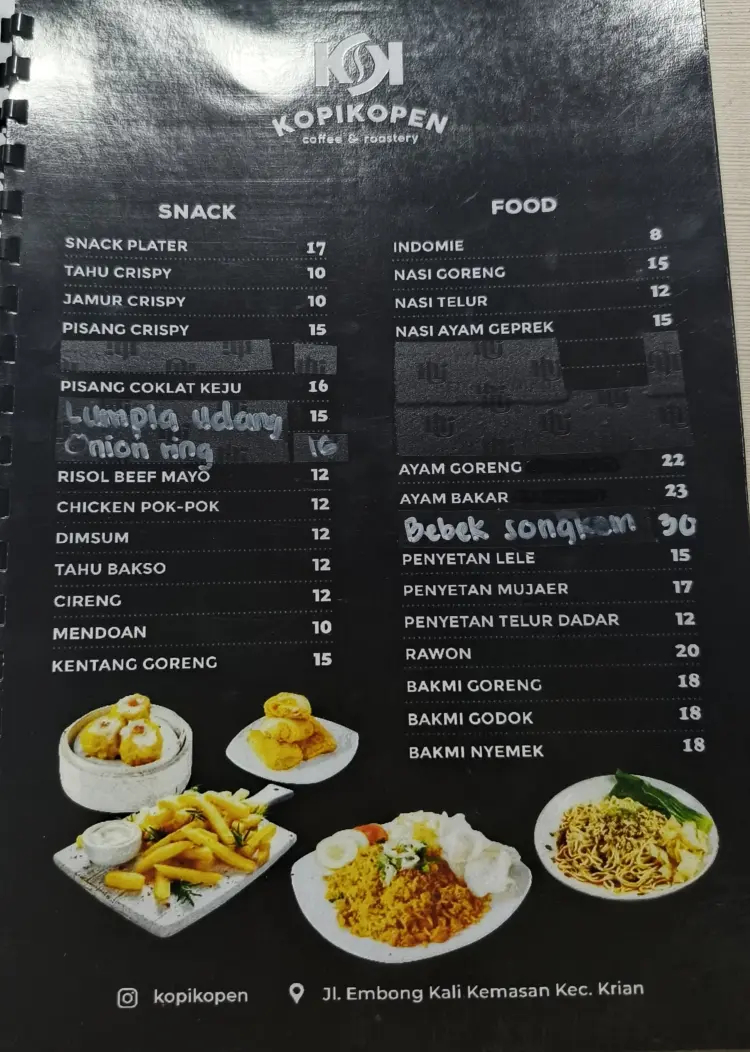 KOPIKOPEN
coffee & roastery
SNACK
SNACK PLATER 17
TAHU CRISPY 10
JAMUR CRISPY 10
PISANG CRISPY 15
PISANG COKLAT KEJU 16
Lumpia udang 15
Onion ring 16
RISOL BEEF MAYO 12
CHICKEN POK-POK 12
DIMSUM 12
TAHU BAKSO 12
CIRENG 12
MENDOAN 10
KENTANG GORENG 15
FOOD
INDOMIE 8
NASI GORENG 15
NASI TELUR 12
NASI AYAM GEPREK 15
AYAM GORENG 22
AYAM BAKAR 23
Bebek songkem 30
PENYETAN LELE 15
PENYETAN MUJAER 17
PENYETAN TELUR DADAR 12
RAWON 20
BAKMI GORENG 18
BAKMI GODOK 18
BAKMI NYEMEK 18
kopikopen
Jl. Embong Kali Kemasan Kec. Krian